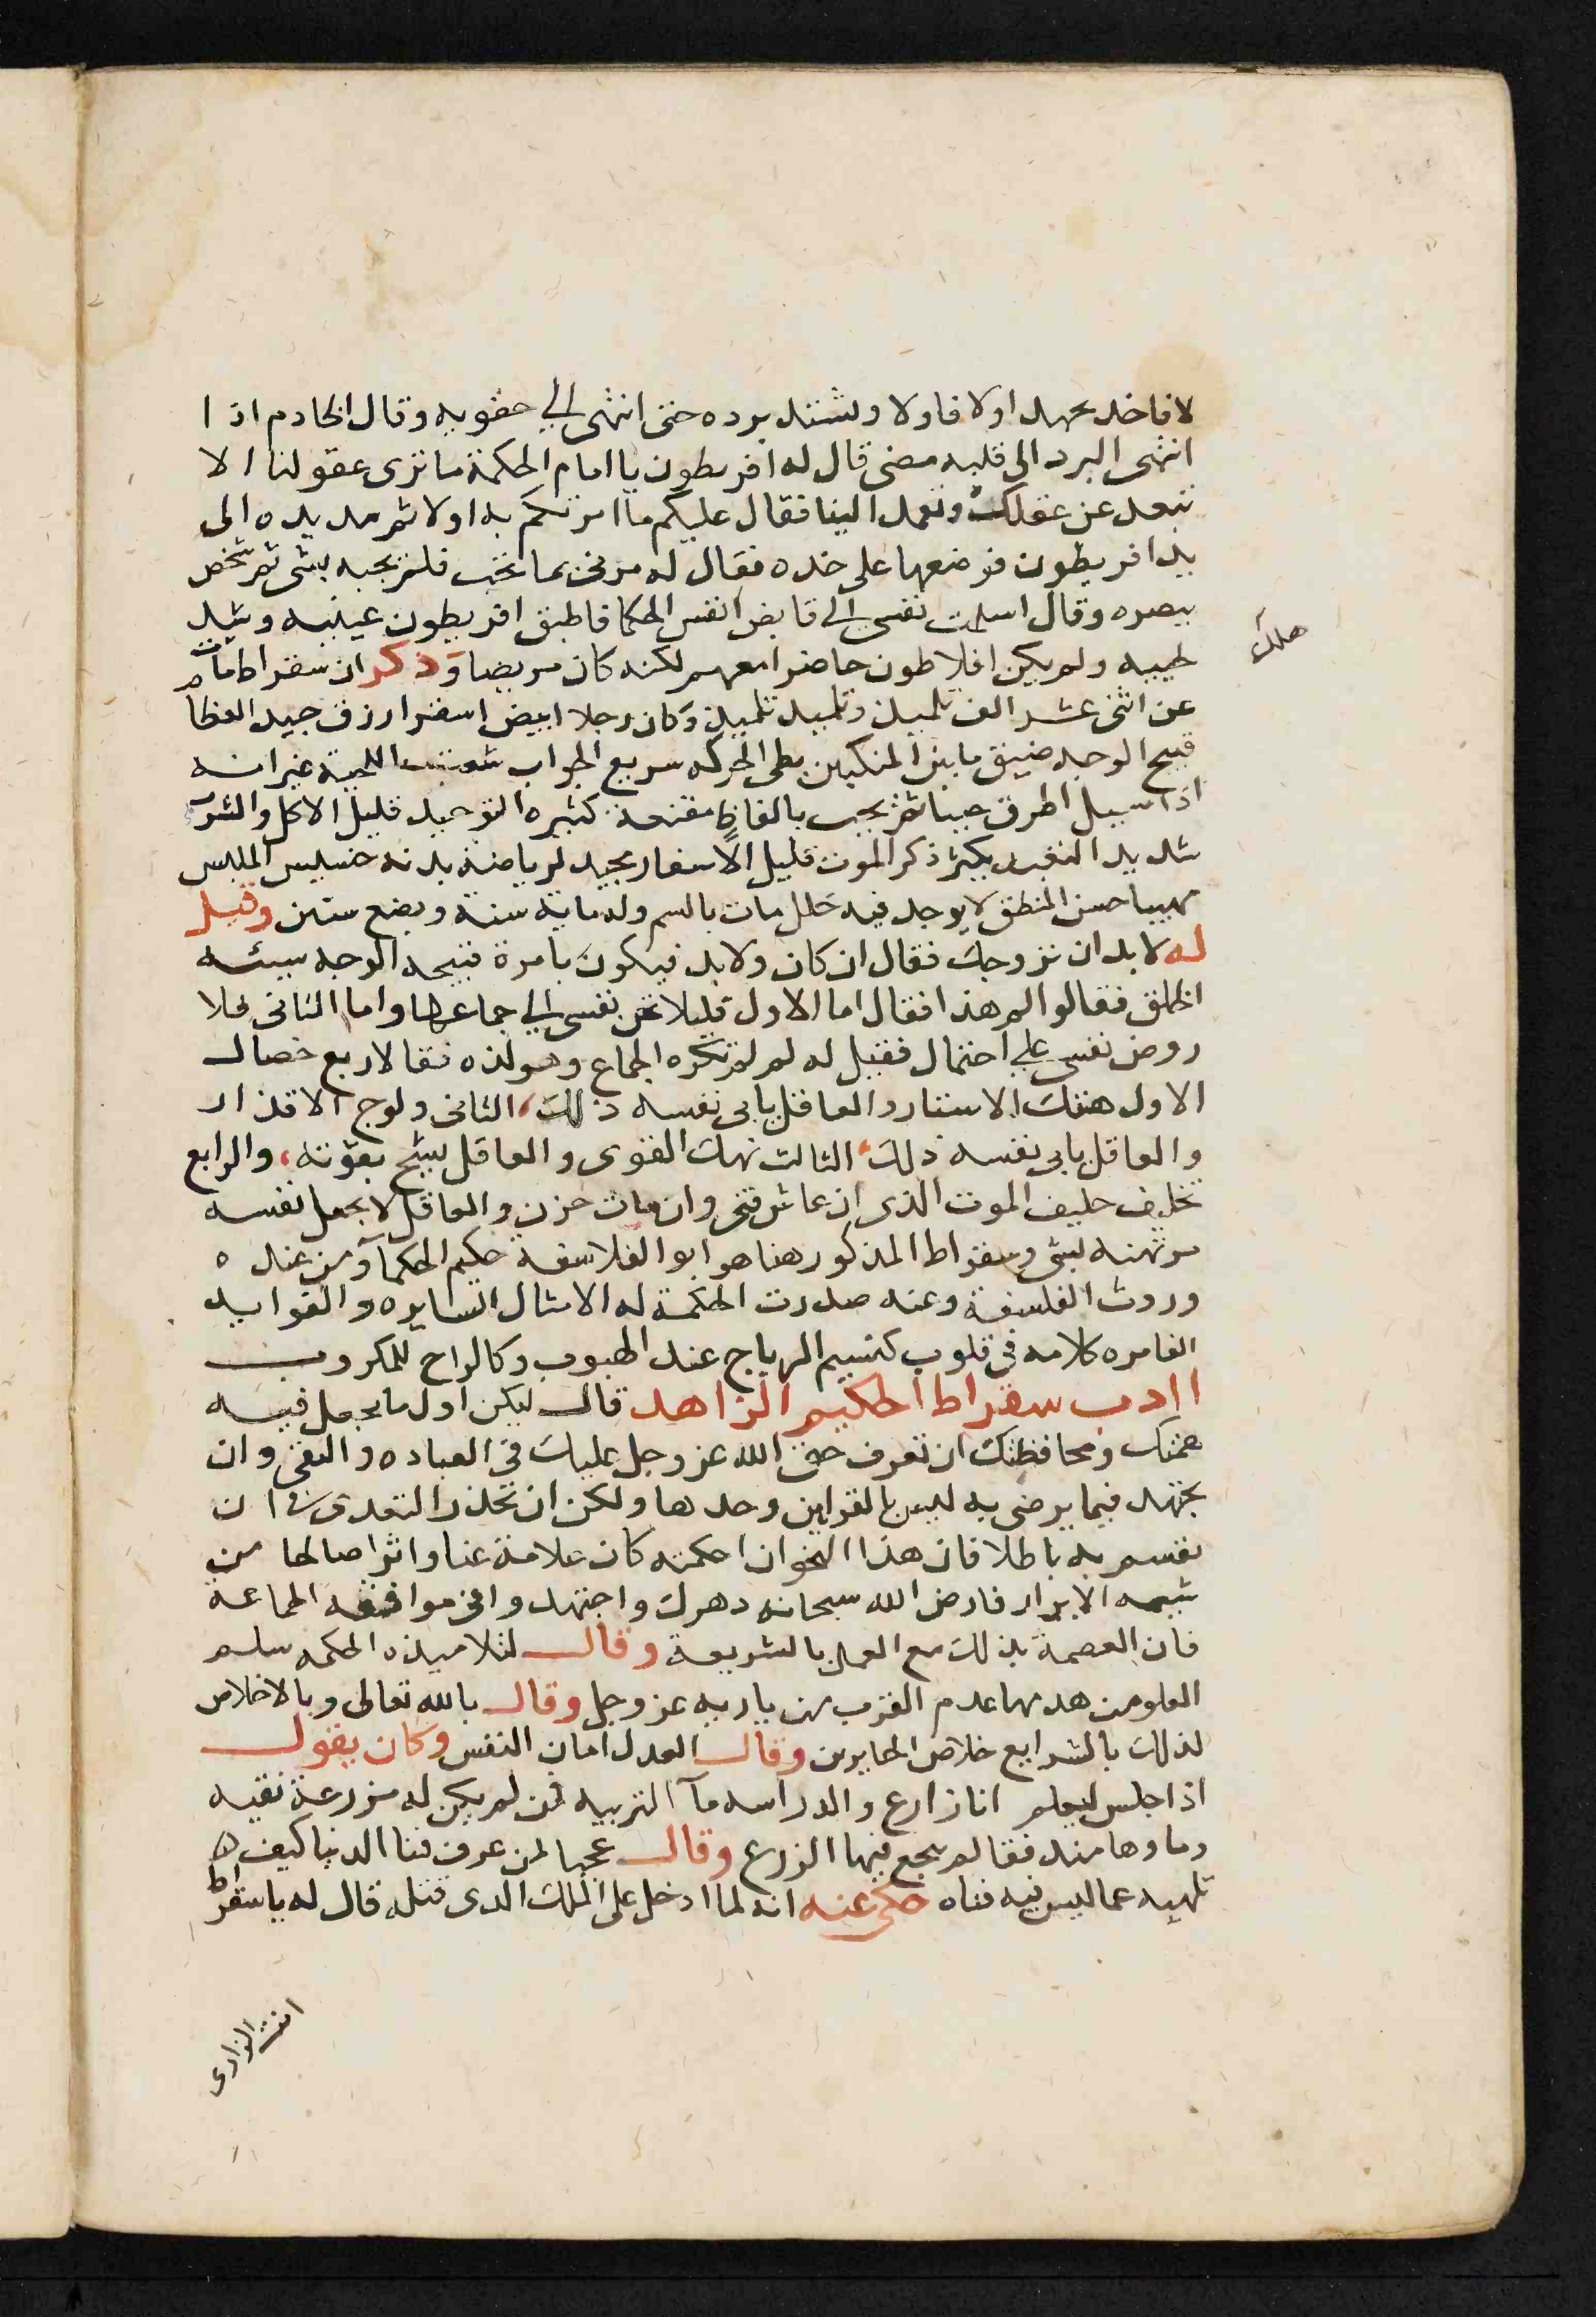 لا فاخد يجهد اولا فاولا ويشتند برده حتى انتهى الي حقويه وقال الخادم اذا
انتهى البرد الى قلبه مضى قال له افريطون يا امام الحكمة ما نرى عقولنا الا
تبعد عن عقلك وتعمد الينا فقال عليكم ما امرتكم به اولا ثم مد يده الى
يد افريطون فوضعها على خده فقال له مرنى بما تحب فلم يجبه بشى ثم شخص
ببصره وقال اسلمت نفسى الى قابض انفس الحكما فاطبق افريطون عينيه وشد
لحييه ولم يكن افلاطون حاضرا معهم لكنه كان مريضا وذكر ان سقراط مات
عن اثنى عشر الف تلميذ وتلميد تلميذ وكان رجلا ابيض اشقر ازرق جيد العظام
قبيح الوجه ضيق ما بين المنكبين بطى الحركه سريع الجواب شعث اللحية غير انه
اذا سيل اطرق حينا ثم يجيب بالفاظ مقنعة كثيره التوحيد قليل الاكل والشرب
شديد التعبد يكثر ذكر الموت قليل الاسفار مجيد لرياضة بدنه خسيس الملبس
مهيبا حسن المنطق لا يوجد فيه خلل مات بالسم وله ماية سنة وبضع سنين وقيل
له لا بد ان نزوجك فقال ان كان ولا بد فيكون بامرة قبيحة الوجه سيئه
الخلق فقالوا لم هذا فقال اما الاول فليلا تتق نفسى الي جماعها واما الثانى فلا
روض نفسى على احتمال فقيل له لم لم تكره الجماع وهو لذه فقا لاربع خصال
الاول هتك الاستار والعاقل يابى نفسه ذلك، الثانى ولوج الاقذار
والعاقل يابى نفسه ذلك، الثالث نهك القوى والعاقل يشح بقوته، والرابع
تخليف حليف الموت الذى ان عاش فتى وان مات حزن والعاقل لا يجعل نفسه
مرتهنه لشى وسقراط المذكور هنا هو ابو الفلاسفة حكيم الحكما ومن عنده
وروث الفلسفة وعنه صدرت الحكمة له الامثال السايره والفوايد
الغامره كلامه فى قلوب كنسيم الرياح عند الهبوب وكالراح للمكروب
اادب سقراط الحكيم الزاهد قال ليكن اول ما يجعل فيه
همتك ومحافظتك ان تعرف حق الله عز وجل عليك فى العباده والتقى وان
يجتهد فيما يرضى به ليس بالقراين وحدها ولكن ان تحذر التعدى فى ان
تقسم به باطلا فان هذا النحو ان احكمته كان علامة غنا واثرا صالحا من
شيمه الابرار فارض الله سبحانه دهرك واجتهد وافى موافقه الجماعة
فان العصمة بذلك مع العمل بالشريعة وقال لتلاميذه الحكمه سلم
العلو من هدمها عدم القرب من باريه عز وجل وقال بالله تعالى وبالاخلاص
لذلك بالشرايع خلاص الحايرين وقال العدل امان النفس وكان يقول
اذا جلس ليعلم انا زارع والدراسه مآ التربيه فمن لم يكن له مزرعة نقيه
وما وها منه فقا لم ينجع فيها الزرع وقال عجبا لمن عرف فنا الدنيا كيف
تلهيه عما ليس فيه فناه حكى عنه انه لما ادخل على الملك الذى قتله قال له يا سقراط
ملك
انت الزارى